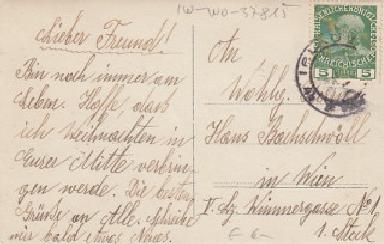 IW-WO-37815
Lieber Freund!
Bin noch immer am
Leben. Hoffe, dass
ich Weihnachten in
Eurer Mitte verbrin-
gen werde. Die besten
Grüsse an Alle. Schreibe
mir bald etwas Neues.
An
Wohlg.
Hans
in Wien
Wimmergasse No 1
1. Stock
5 5